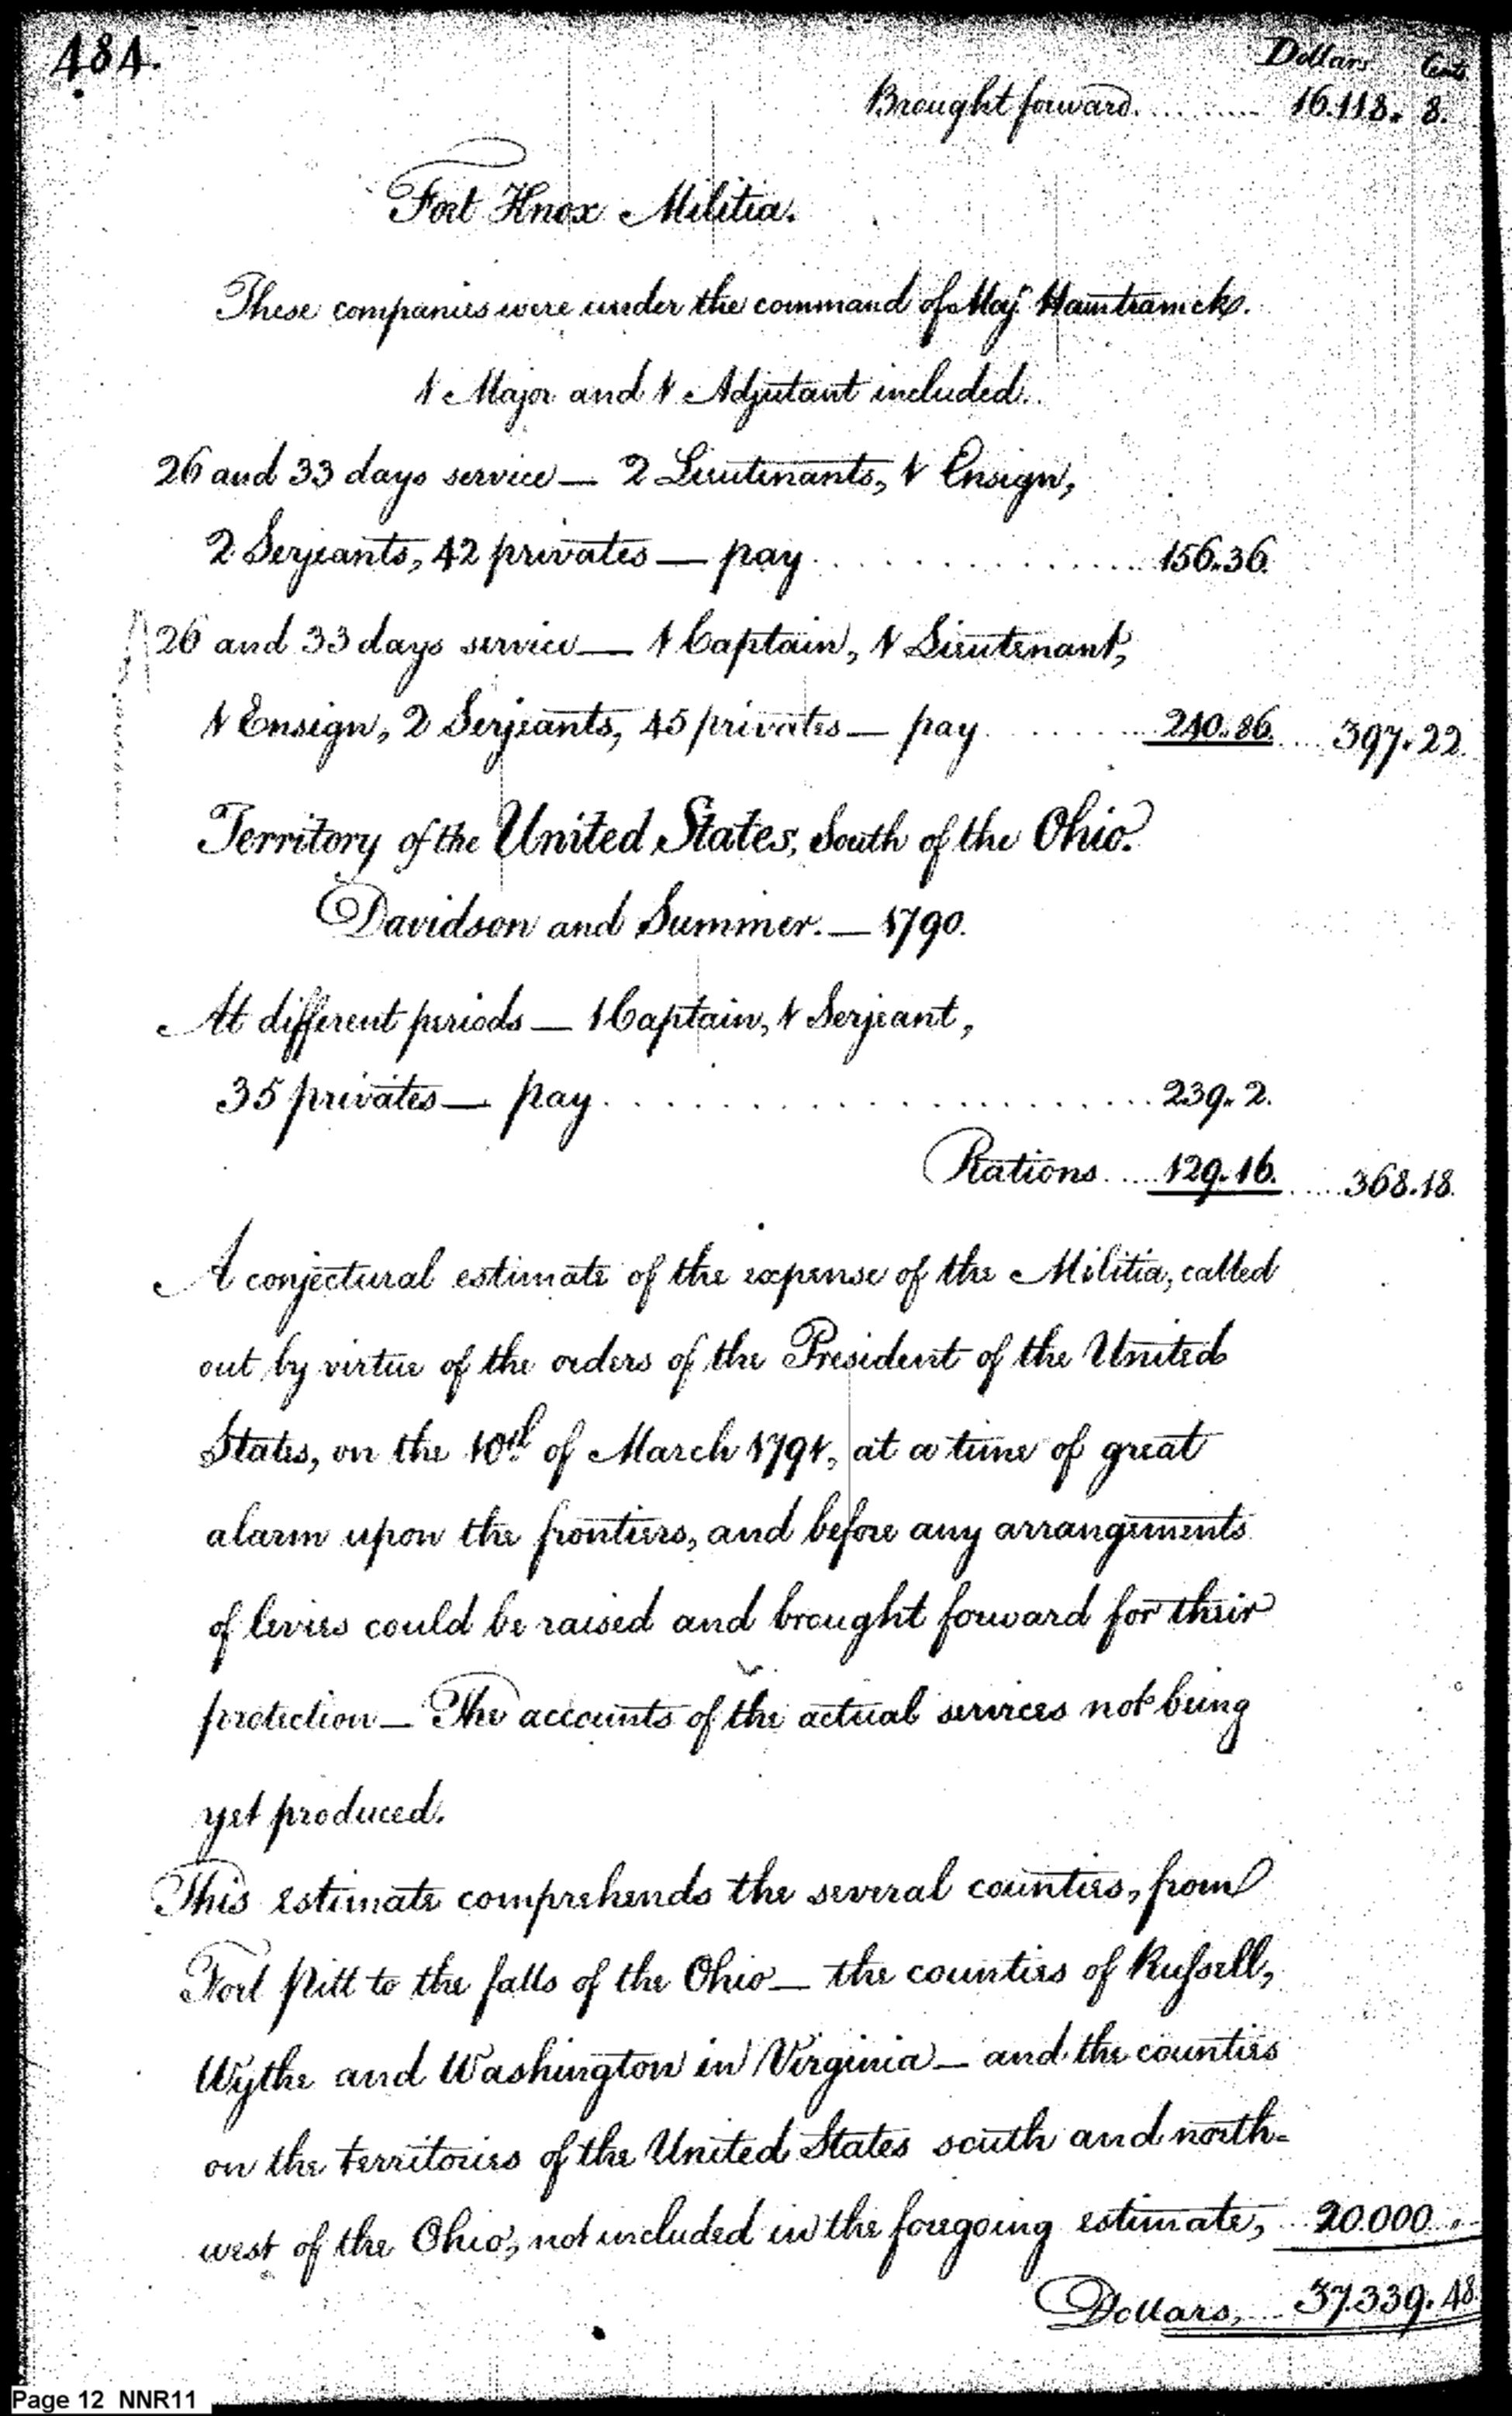 484.
Dollars Cents
Brought forward. .......... 16.118. 8.
Fort Knox Militia.
These companies were under the command of Maj. Hamtramck.
1 Major and 1 Adjutant included.
26 and 33 days service — 2 Lieutenants, 1 Ensign,
2 Serjeants, 42 privates — pay ............... 156.36.
26 and 33 days service — 1 Captain, 1 Lieutenant,
1 Ensign, 2 Serjeants, 45 privates — pay ........ 240.86. .... 397.22.
Territory of the United States, South of the Ohio.
Davidson and Sumner. — 1790.
At different periods — 1 Captain, 1 Serjeant,
35 privates — pay ..................... 239. 2.
Rations ..... 129.16. ..... 368.18.
A conjectural estimate of the expense of the Militia, called
out by virtue of the orders of the President of the United
States, on the 10th of March 1791, at a time of great
alarm upon the frontiers, and before any arrangements
of levies could be raised and brought forward for their
protection — The accounts of the actual services not being
yet produced.
This estimate comprehends the several counties, from
Fort Pitt to the falls of the Ohio — the counties of Russell,
Wythe and Washington in Virginia — and the counties
on the territories of the United States south and north-
west of the Ohio, not included in the foregoing estimate, ... 20.000 ..
Dollars, .... 37.339. 48.
Page 12 NNR11